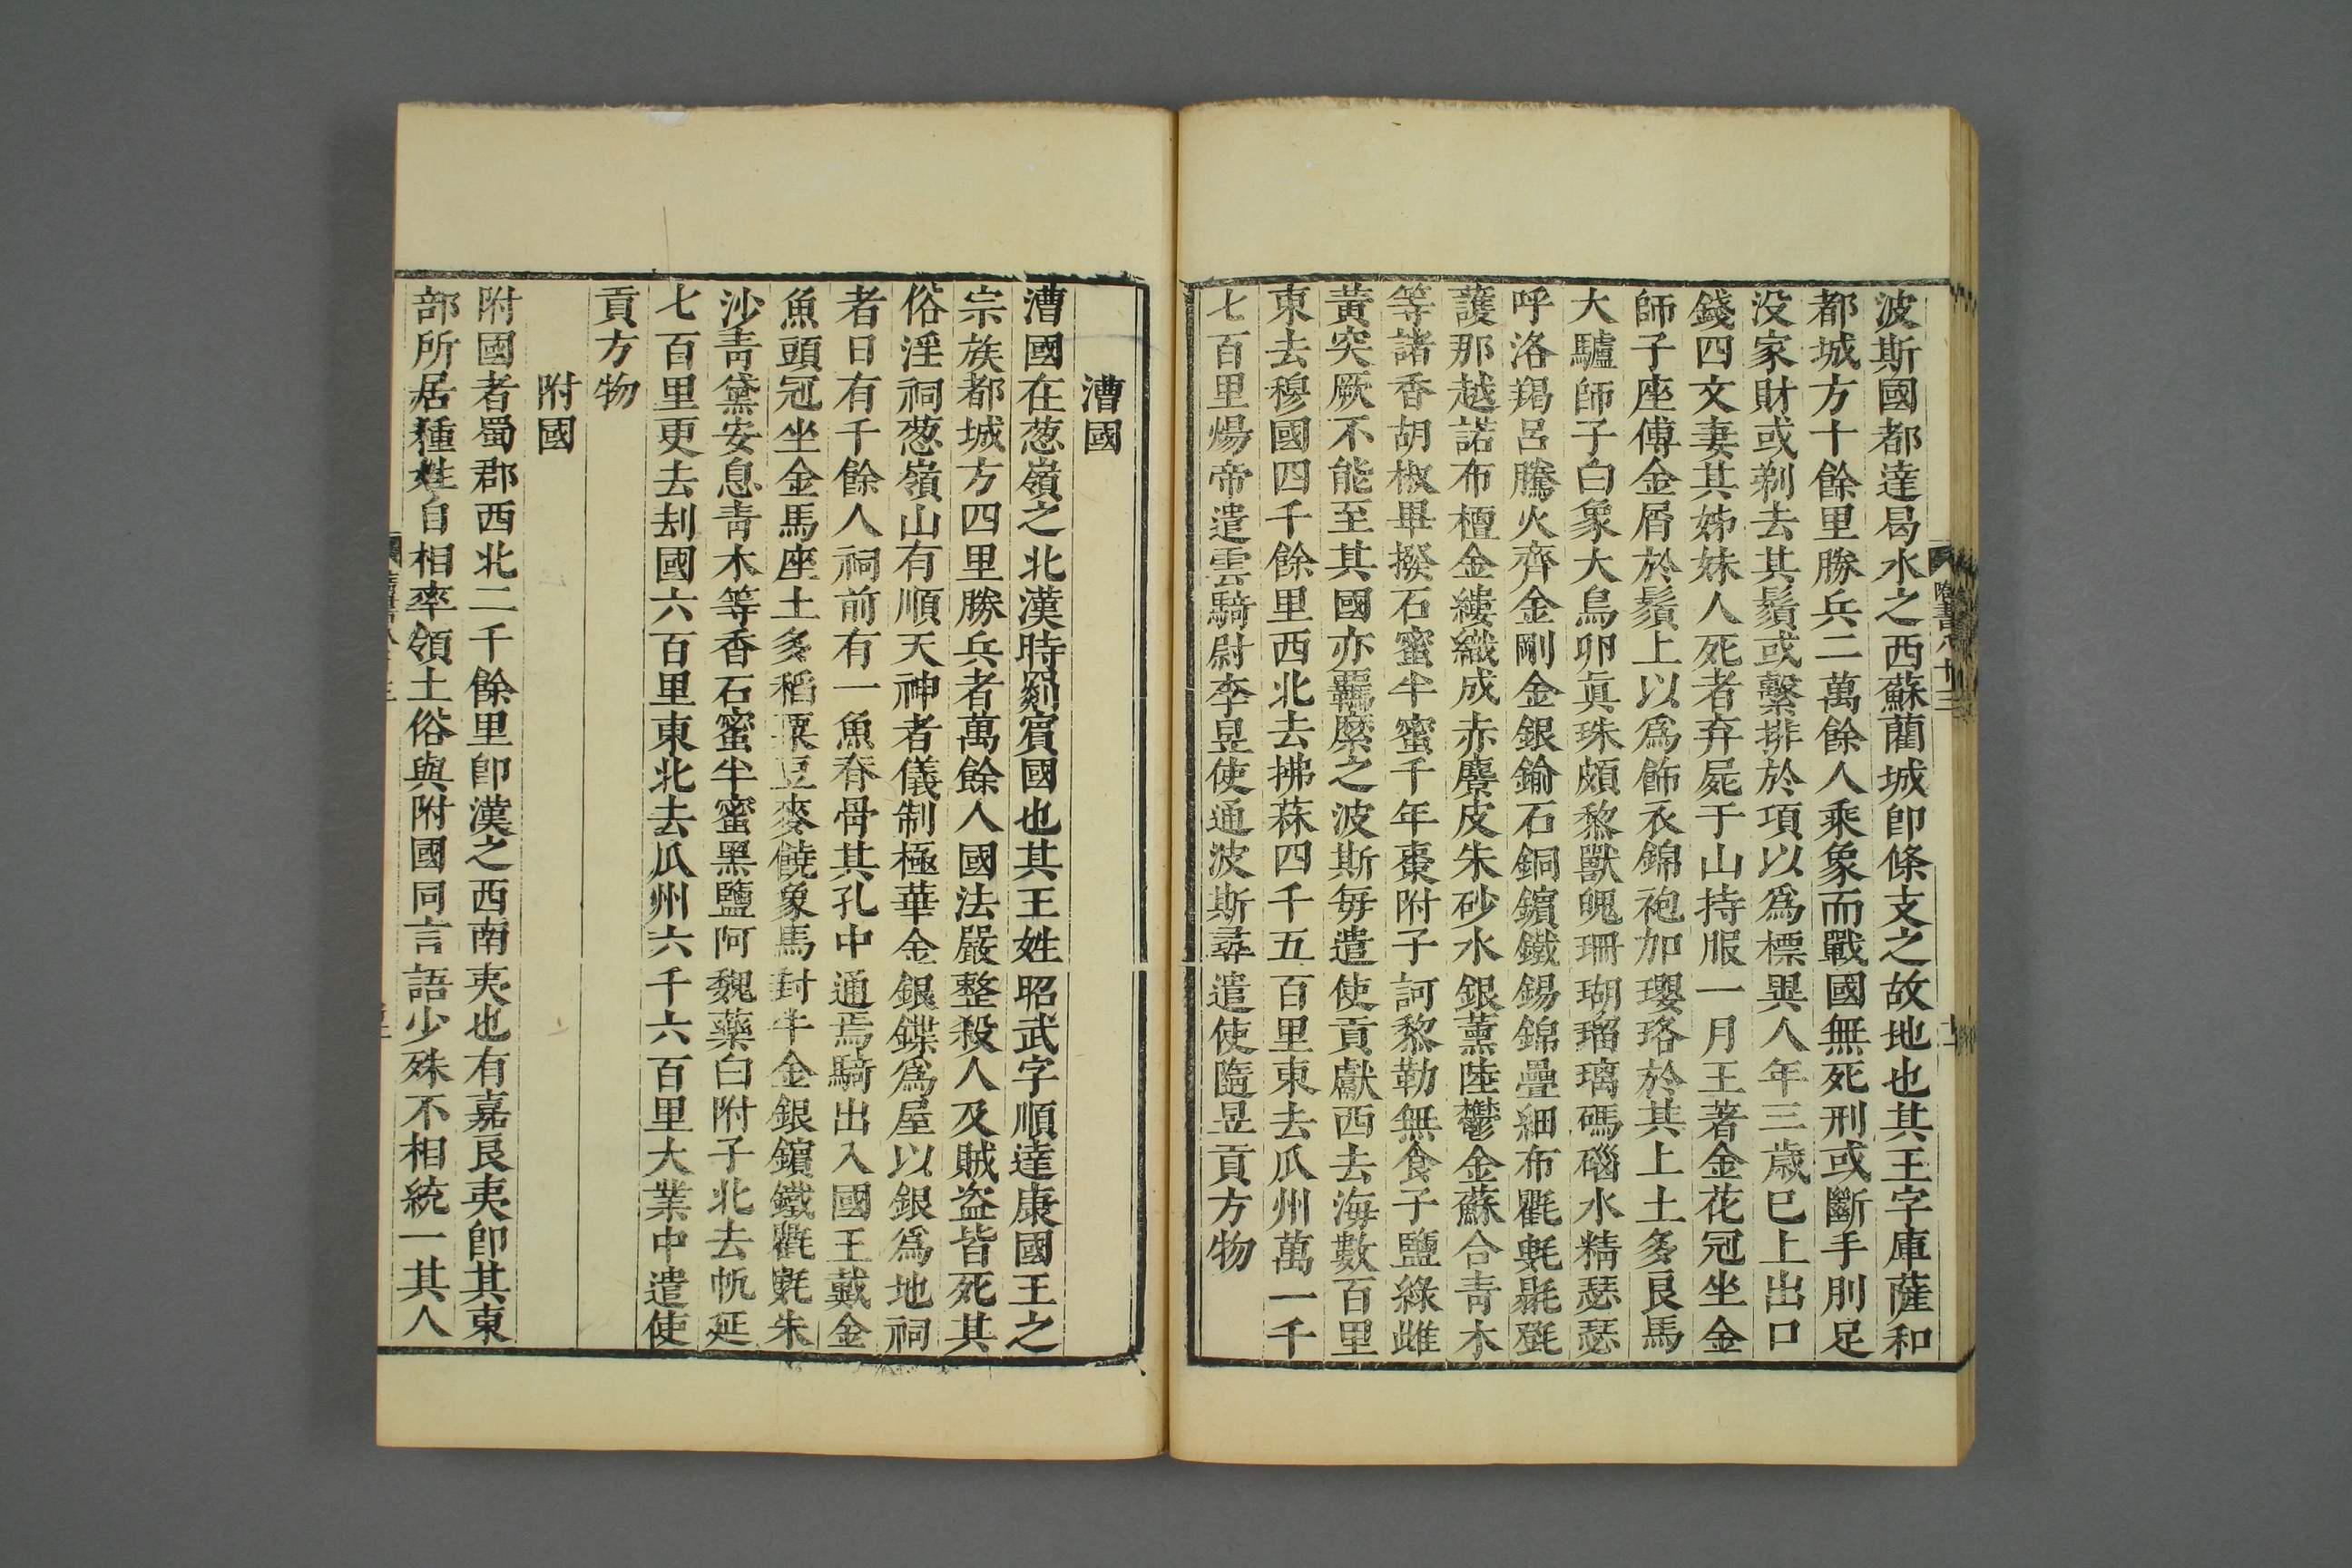 波斯國都達曷水之西蘇藺城即條支之故地也其王字庫薩和
都城方十餘里勝兵二萬餘人乘象而戰國無死刑或斷手刖足
没家財或剃去其鬚或繫排於項以爲標異人年三歲巳上出口
錢四文妻其姊妹人死者弃屍于山持服一月王著金花冠坐金
師子座傅金屑於鬚上以爲飾衣錦袍加瓔珞於其上土多良馬
大驢師子白象大鳥卵眞珠頗黎獸魄珊瑚瑠璃碼碯水精瑟瑟
呼洛羯呂騰火齊金剛金銀鍮石銅鑌鐵錫錦疊細布氍毹毾㲪
護那越諾布檀金縷織成赤麞皮朱砂水銀薰陸鬱金蘇合青木
等諸香胡椒畢撥石蜜半蜜千年棗附子訶黎勒無食子鹽綠雌
黃突厥不能至其國亦羈縻之波斯每遣使貢獻西去海數百里
東去穆國四千餘里西北去拂菻四千五百里東去瓜州萬一千
七百里煬帝遣雲騎尉李昱使通波斯尋遣使隨昱貢方物
隋書八十三
漕國
漕國在葱嶺之北漢時罽賓國也其王姓昭武字順達康國王之
宗族都城方四里勝兵者萬餘人國法嚴整殺人及賊盗皆死其
俗淫祠葱嶺山有順天神者儀制極華金銀鍱爲屋以銀爲地祠
者日有千餘人祠前有一魚脊骨其孔中通焉騎出入國王戴金
魚頭冠坐金馬座土多稻粟豆麥饒象馬封牛金銀鑌鐵氍毹朱
沙青黛安息青木等香石蜜半蜜黑鹽阿魏藥白附子北去帆延
七百里更去刦國六百里東北去瓜州六千六百里大業中遣使
貢方物
附國
附國者蜀郡西北二千餘里即漢之西南夷也有嘉良夷即其東
部所居種姓自相率領土俗與附國同言語少殊不相統一其人